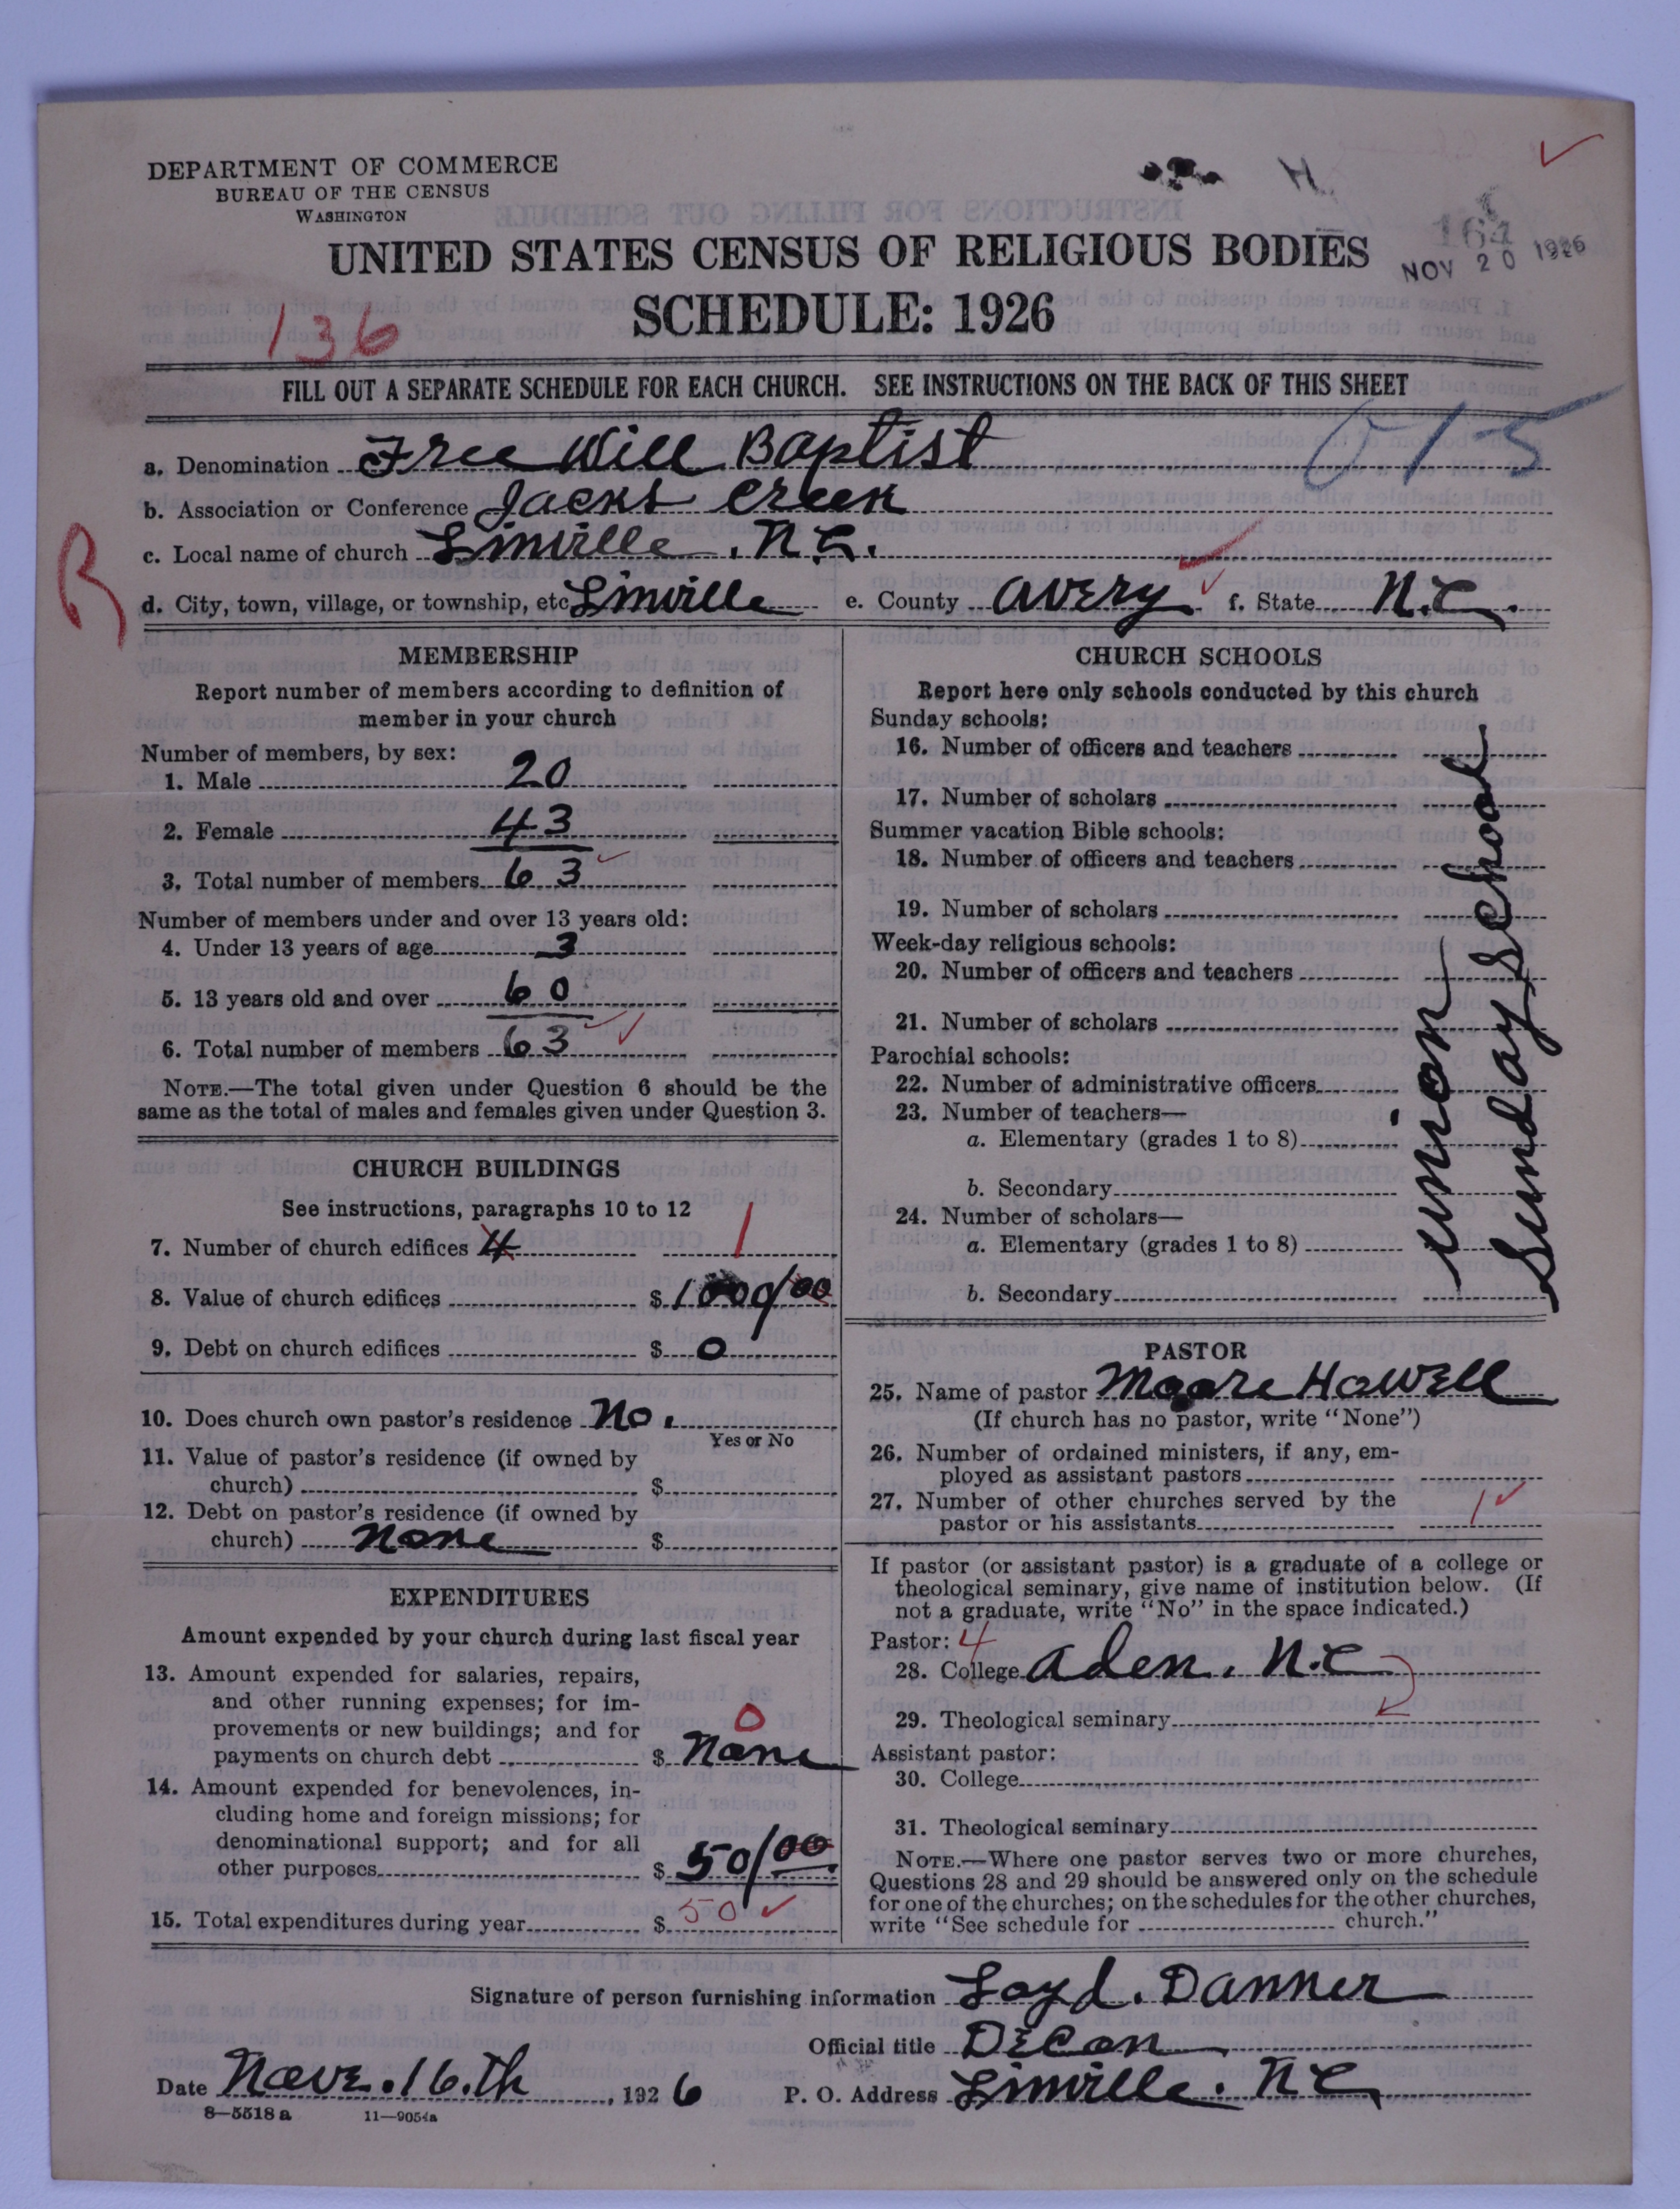 DEPARTMENT OF COMMERCE
BUREAU OF THE CENSUS
WASHINGTON
H.
NOV 20 1926
UNITED STATES CENSUS OF RELIGIOUS BODIES
SCHEDULE: 1926
136
FILL OUT A SEPARATE SCHEDULE FOR EACH CHURCH. SEE INSTRUCTIONS ON THE BACK OF THIS SHEET
015
a. Denomination Free Will Baptist
b. Association or Conference Jacks Creek
c. Local name of church Linville, N.C.
B
d. City, town, village, or township, etc Linville e. County Avery f. State N.C.
MEMBERSHIP
Report number of members according to definition of
member in your church
Number of members, by sex:
1. Male 20
2. Female 43
3. Total number of members 63
Number of members under and over 13 years old:
4. Under 13 years of age 3
5. 13 years old and over 60
6. Total number of members 63
NOTE.—The total given under Question 6 should be the
same as the total of males and females given under Question 3.
CHURCH BUILDINGS
See instructions, paragraphs 10 to 12
7. Number of church edifices 4 1
8. Value of church edifices $ 1000/00
9. Debt on church edifices $ 0
10. Does church own pastor's residence No.
Yes or No
11. Value of pastor's residence (if owned by
church) $
12. Debt on pastor's residence (if owned by
church) None $
EXPENDITURES
Amount expended by your church during last fiscal year
13. Amount expended for salaries, repairs,
and other running expenses; for im-
provements or new buildings; and for 0
payments on church debt $ None
14. Amount expended for benevolences, in-
cluding home and foreign missions; for
denominational support; and for all
other purposes $ 50/00
15. Total expenditures during year $ 50
CHURCH SCHOOLS
Report here only schools conducted by this church
Sunday schools:
16. Number of officers and teachers
17. Number of scholars
Summer vacation Bible schools:
18. Number of officers and teachers
19. Number of scholars
Week-day religious schools:
20. Number of officers and teachers
21. Number of scholars
Parochial schools:
22. Number of administrative officers
23. Number of teachers—
a. Elementary (grades 1 to 8)
b. Secondary
24. Number of scholars—
a. Elementary (grades 1 to 8)
b. Secondary
union
Sunday School
PASTOR
25. Name of pastor Moore Howell
(If church has no pastor, write "None")
26. Number of ordained ministers, if any, em-
ployed as assistant pastors
27. Number of other churches served by the
pastor or his assistants 1
If pastor (or assistant pastor) is a graduate of a college or
theological seminary, give name of institution below. (If
not a graduate, write "No" in the space indicated.)
Pastor: 4
28. College Aden, N.C
29. Theological seminary
Assistant pastor:
30. College
31. Theological seminary
NOTE.—Where one pastor serves two or more churches,
Questions 28 and 29 should be answered only on the schedule
for one of the churches; on the schedules for the other churches,
write "See schedule for church."
Signature of person furnishing information Loyd. Danner
Official title Decon
Date Nove. 16.th, 1926 P. O. Address Linville. N C
8—5518 a 11—9054a